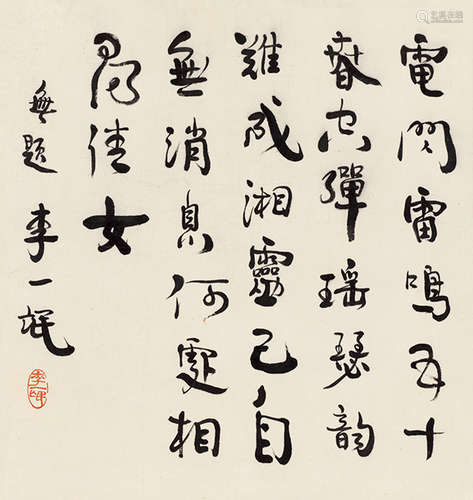 電閃雷鳴五十
春空彈瑤瑟韵
難成湘靈已自
無消息何處相
尋佳女
無題 李一氓